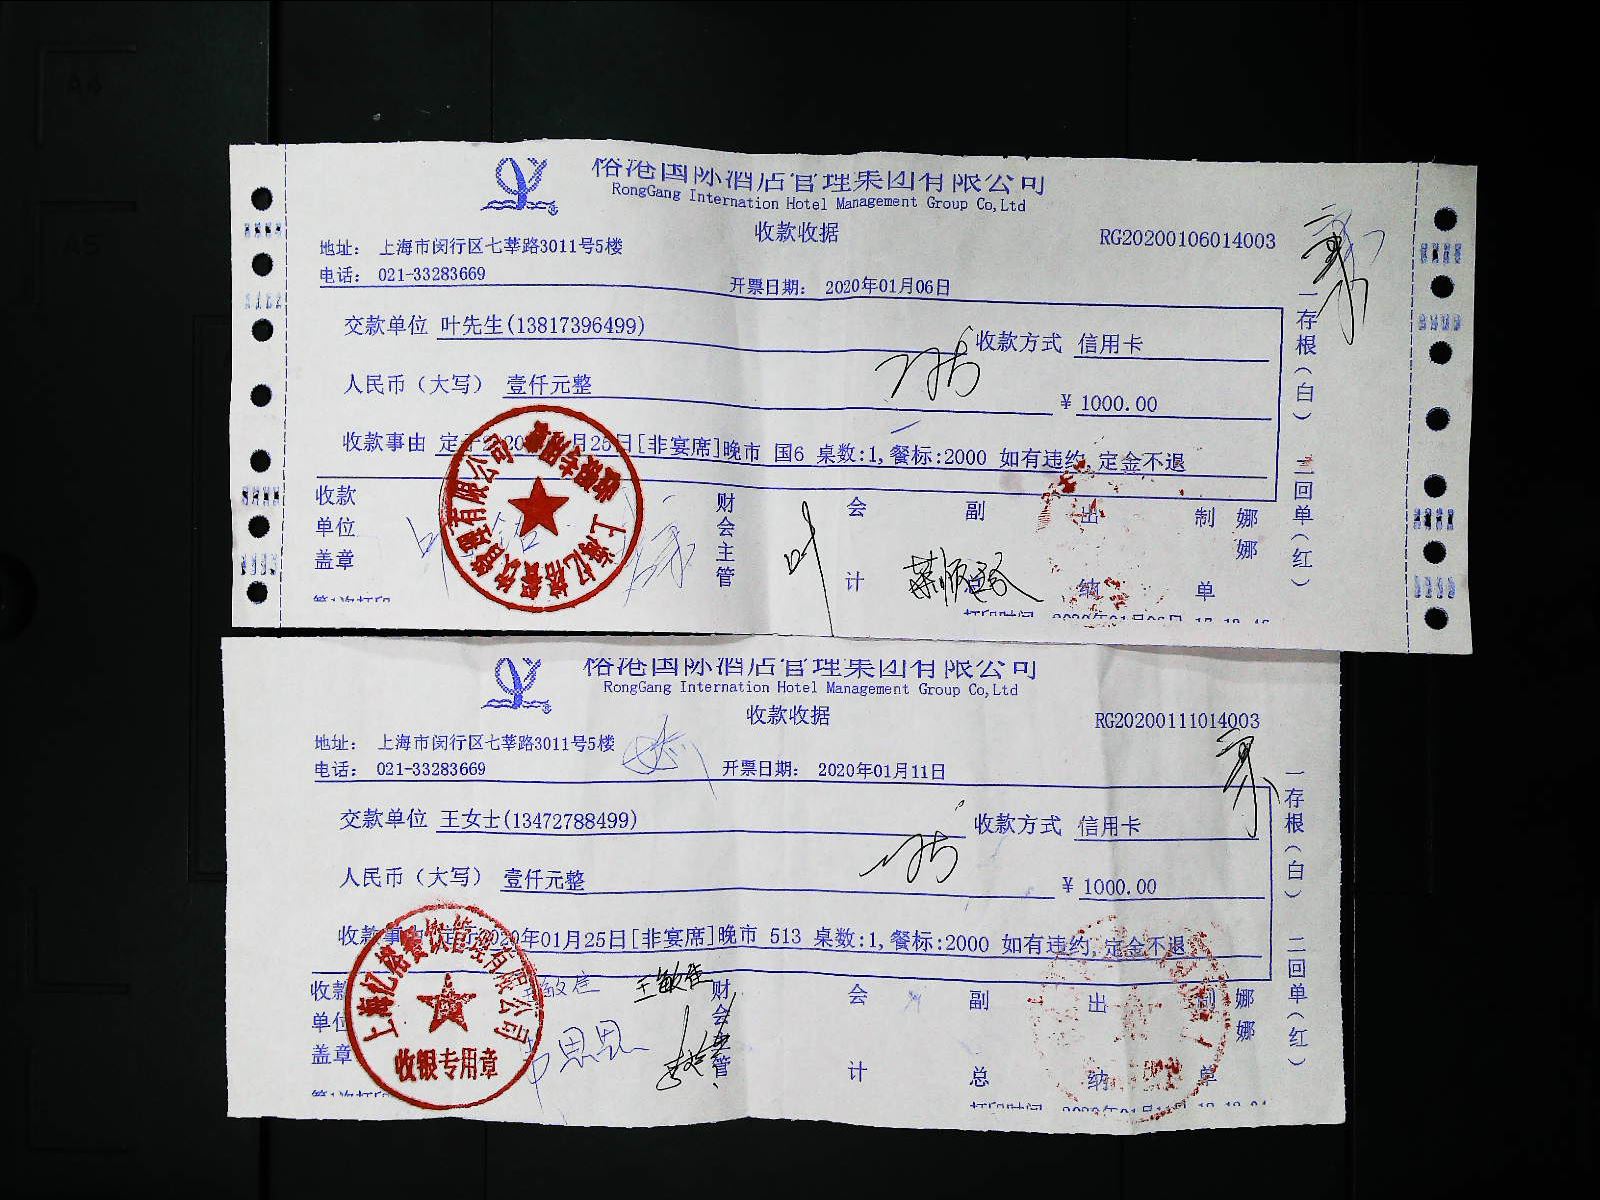 榕港国际酒店管理集团有限公司
RongGang Internation Hotel Management Group Co,Ltd
收款收据
RG20200106014003
地址： 上海市闵行区七莘路3011号5楼
电话： 021-33283669
开票日期： 2020年01月06日
交款单位 叶先生(13817396499)
收款方式 信用卡
人民币（大写） 壹仟元整
¥ 1000.00
收款事由 定于2020年01月25日[非宴席]晚市 国6 桌数:1,餐标:2000 如有违约,定金不退
收款单位盖章
财会主管
会计
副总
出纳
制单
娜娜
一存根（白）
二回单（红）
上海亿榕餐饮管理有限公司
收银专用章
第1次打印
打印时间 2020年01月06日
榕港国际酒店管理集团有限公司
RongGang Internation Hotel Management Group Co,Ltd
收款收据
RG20200111014003
地址： 上海市闵行区七莘路3011号5楼
电话： 021-33283669
开票日期： 2020年01月11日
交款单位 王女士(13472788499)
收款方式 信用卡
人民币（大写） 壹仟元整
¥ 1000.00
收款事由 定于2020年01月25日[非宴席]晚市 513 桌数:1,餐标:2000 如有违约,定金不退
收款单位盖章
王敏佳
财会主管
会计
副总
出纳
制单
娜娜
一存根（白）
二回单（红）
上海亿榕餐饮管理有限公司
收银专用章
第1次打印
打印时间 2020年01月11日
A4
A5